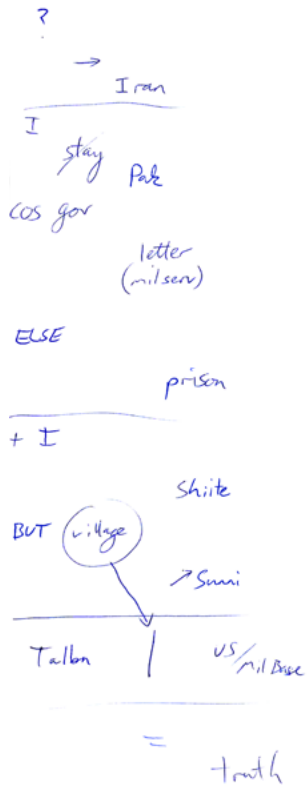 ?
→
Iran
I
stay
Pak
cos gov
letter
(milserv)
ELSE
prison
+ I
Shiite
BUT village
↗ Sunni
Talbn | US/Mil Base
=
truth